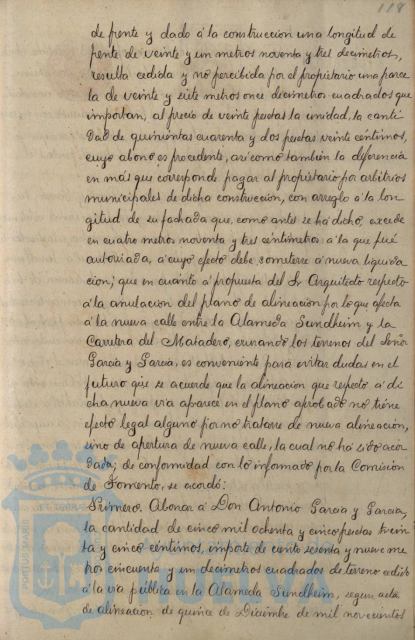 118
de frente y dado á la construccion una longitud de
frente de veinte y un metros noventa y tres decimetros,
resulta cedida y no percibida por el propietario una parce
la de veinte y siete metros once decimetros cuadrados que
importan, al precio de veinte pesetas la unidad, la canti
dad de quinientas cuarenta y dos pesetas veinte céntimos,
cuyo abono es procedente, asi como tambien la diferencia
en más que corresponde pagar al propietario por arbitrios
municipales de dicha construccion, con arreglo á la lon
gitud de su fachada que, como antes se há dicho, excede
en cuatro metros noventa y tres céntimetros á la que fué
autorizada, á cuyo efecto debe someterse á nueva liquida
cion; que en cuánto á propuesta del Sr Arquitecto respecto
á la anulacion del plano de alineacion por lo que afecta
á la nueva calle entre la Alameda Sundheim y la
Carretera del Matadero, cruzando los terrenos del Señor
Garcia y Garcia, es conveniente para evitar dudas en el
futuro que se acuerde que la alineacion que respecto á di
cha nueva via aparece en el plano aprobado no tiene
efecto legal alguno por no tratarse de nueva alineacion,
sino de apertura de nueva calle, la cual no há sido acor
dada; de conformidad con lo informado por la Comision
de Fomento, se acordó:
Primero. Abonar á Don Antonio Garcia y Garcia,
la cantidad de cinco mil ochenta y cinco pesetas trein
ta y cinco céntimos, importe de ciento sesenta y nueve me
tros cincuenta y un decimetros cuadrados de terreno cedido
á la via pública en la Alameda Sundheim, segun acta
de alineacion de quince de Diciembre de mil novecientos